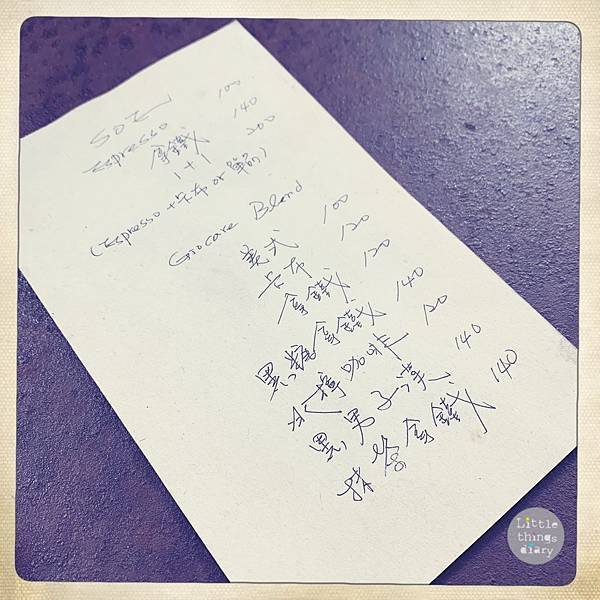 SOE
Espresso 100
拿鐵 140
1+1 200
(Espresso+卡布 or 拿鐵)
Giocare Blend
義式 100
卡布 120
拿鐵 120
黑糖拿鐵 140
冰滴咖啡 120
黑男子漢 140
抹茶拿鐵 140
Little
things
diary